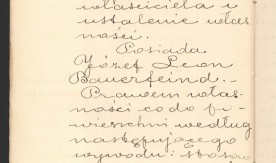 właściciela i
ustalenie włas
ności.
Posiada
Józef Leon
Bauerfeind.
Prawem włas-
ności co do po-
wierzchni według
następującego
wywodu: stosow